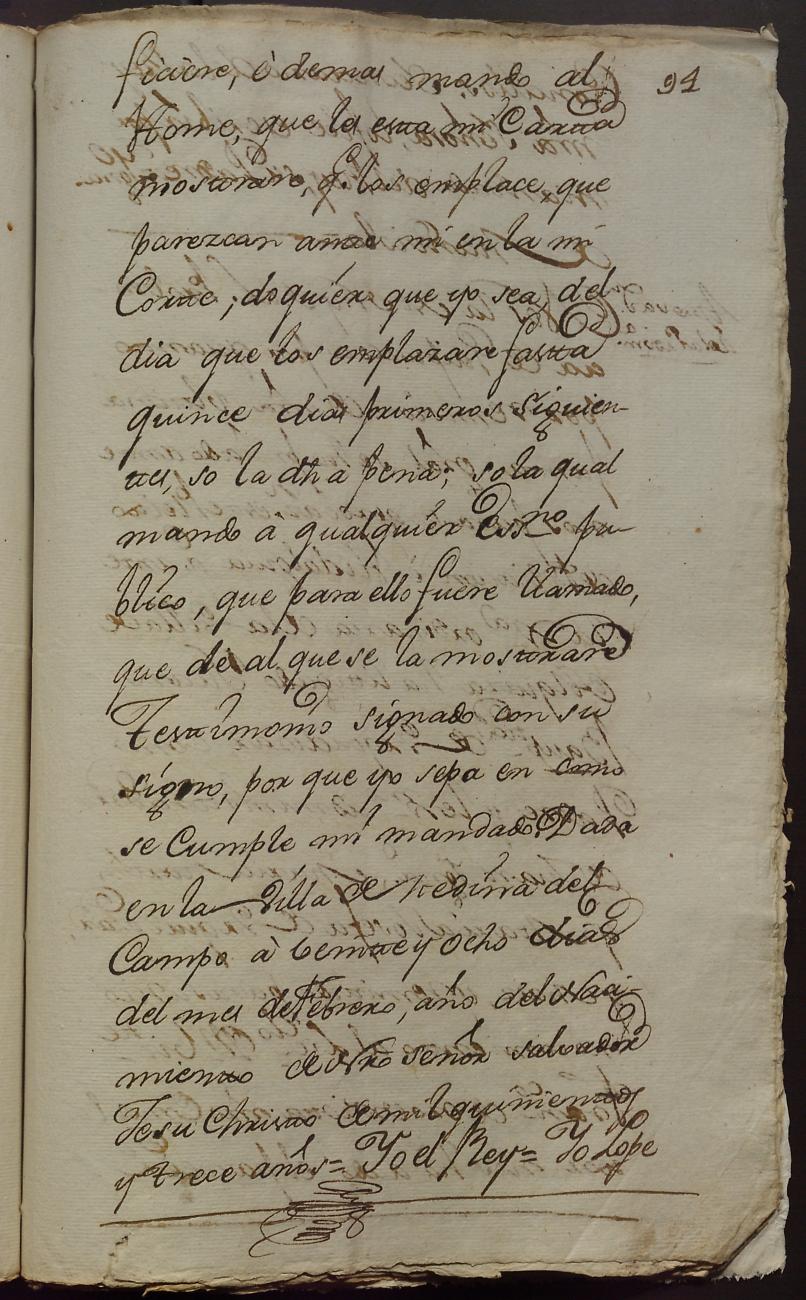 ficiere, è demas mando al 94
Home, que les esta mi Carta
mostrare, q.e los emplace, que
parezcan ante mi en la mi
Corte; do quier que yo sea, del
dia que los emplazare fasta
quince dias primeros Siguien-
tes, so la dha pena; so la qual
mando à qualquier Essno pu-
blico, que para ello fuere llamado,
que de al que se la mostrare
Testimonio signado con su
signo, por que yo sepa en como
se Cumple mi mandado: Dada
en la Villa de Medina del
Campo à beinte y Ocho dias
del mes de Febrero, año del Naci-
miento de Nro Señor Salvador
Jesu Christo de mil quinientos
y trece años = Yo el Rey = Yo Lope